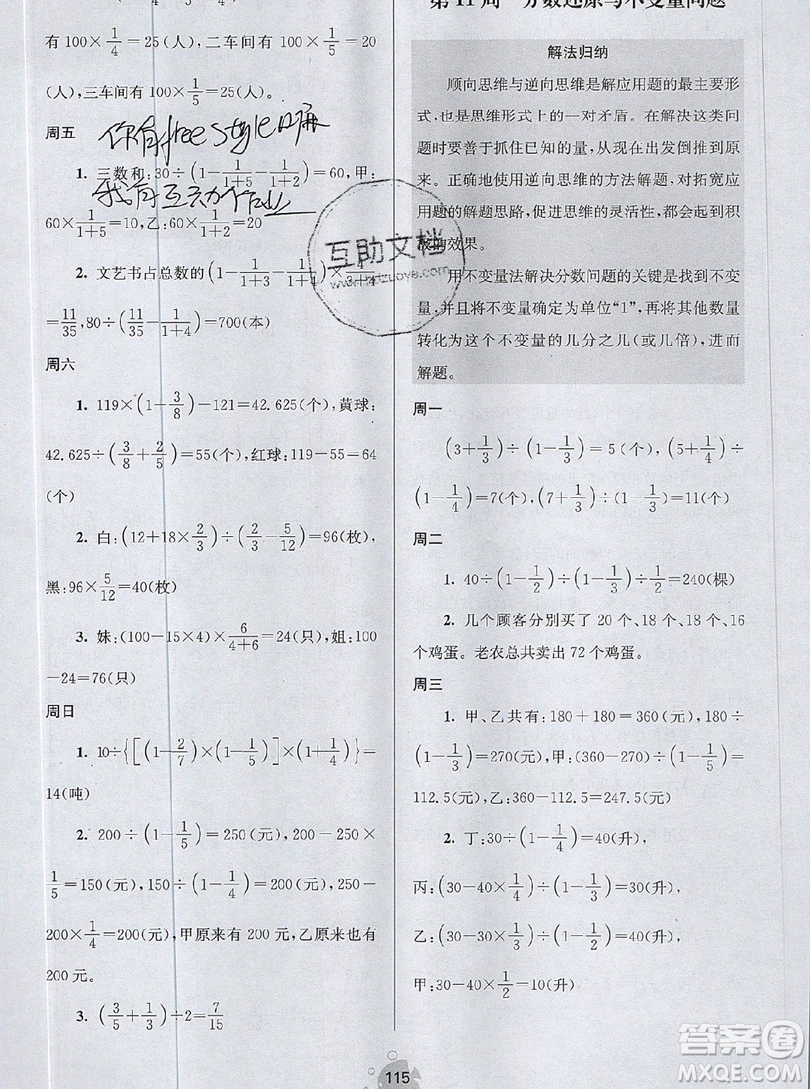 有100×1/4=25(人),二车间有100×1/5=20
(人),三车间有100×1/5=20(人)
周五
你有freestyle吗
1. 三数和:30÷(1-1/(1+5)-1/(1+2))=60,甲:
我有互动作业
60×1/(1+5)=10,乙:60×1/(1+2)=20
2. 文艺书占总数的(1-1/(1+4))×1/(3+4)
=11/35,80÷(11/35-1/(1+4))=700(本)
周六
1. 119×(1-3/8)-121=42.625(个),黄球:
42.625÷(3/8+2/5)=55(个),红球:119-55=64
(个)
2. 白:(12+18×2/3)÷(2/3-5/12)=96(枚),
黑:96×5/12=40(枚)
3. 妹:(100-15×4)×6/(4+6)=24(只),姐:100
-24=76(只)
周日
1. 10÷{[(1-2/7)×(1-1/5)]×(1+1/4)}=
14(吨)
2. 200÷(1-1/5)=250(元),250-250×
1/5=150(元),200÷(1-1/4)=200(元),200-
200×1/4=200(元),甲原来有200元,乙原来也有
200元。
3. (3/5+1/3)÷2=7/15
115
第11周 分数还原与不变量问题
解法归纳
顺向思维与逆向思维是解应用题的最主要形
式,也是思维形式上的一对矛盾。在解决这类问
题时要善于抓住已知的量,从现在出发倒推到原
来。正确地使用逆向思维的方法解题,对拓宽应
用题的解题思路,促进思维的灵活性,都会起到积
极的效果。
用不变量法解决分数问题的关键是找到不变
量,并且将不变量确定为单位“1”,再将其他数量
转化为这个不变量的几分之几(或几倍),进而
解题。
周一
(3+1/3)÷(1-1/3)=5(个),(5+1/4)÷
(1-1/4)=7(个),(7+1/3)÷(1-1/3)=11(个)
周二
1. 40÷(1-1/2)÷(1-1/3)÷1/2=240(棵)
2. 几个顾客分别买了20个、18个、18个、16
个鸡蛋。老农总共卖出72个鸡蛋。
周三
1. 甲、乙共有:180+180=360(元),180÷
(1-1/3)=270(元),甲:(360-270)÷(1-1/5)=
112.5(元),乙:360-112.5=247.5(元)
2. 丁:30÷(1-1/4)=40(升),
丙:(30-40×1/4)÷(1-1/3)=30(升),
乙:(30-30×1/3)÷(1-1/2)=40(升),
甲:30-40×1/2=10(升)
互助文档
答案圈
MXQE.COM